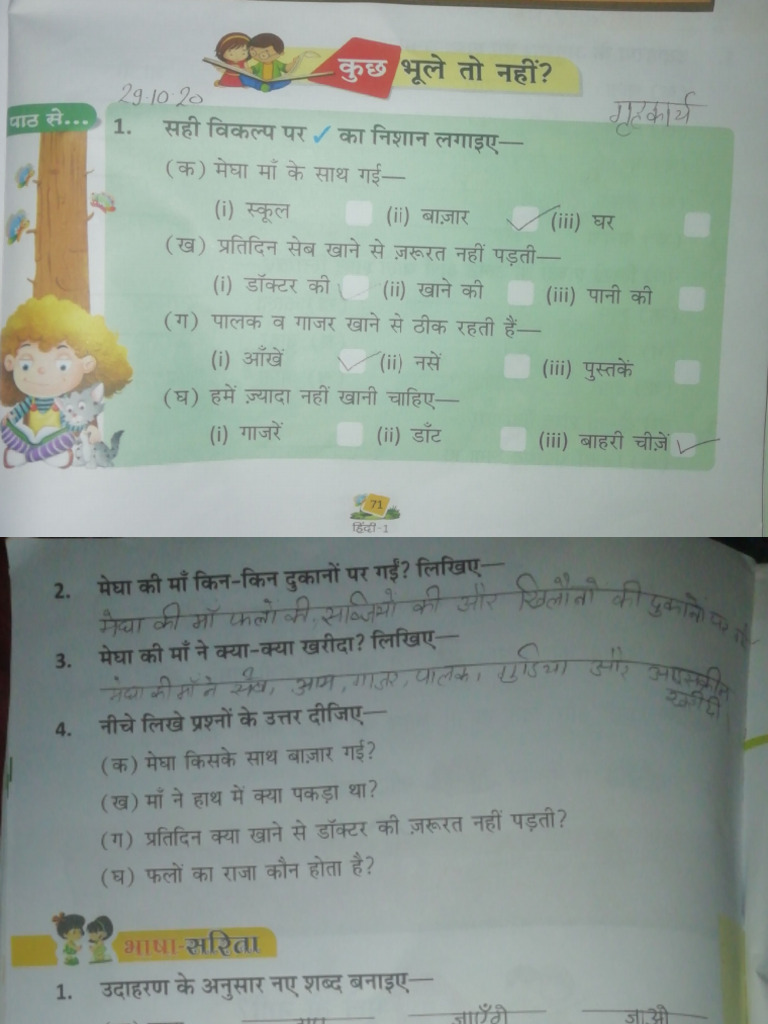 कुछ भूले तो नहीं?
29.10.20
गृहकार्य
पाठ से...
1. सही विकल्प पर ✓ का निशान लगाइए—
(क) मेघा माँ के साथ गई—
(i) स्कूल (ii) बाज़ार ✓ (iii) घर
(ख) प्रतिदिन सेब खाने से ज़रूरत नहीं पड़ती—
(i) डॉक्टर की ✓ (ii) खाने की (iii) पानी की
(ग) पालक व गाजर खाने से ठीक रहती हैं—
(i) आँखें ✓ (ii) नसें (iii) पुस्तकें
(घ) हमें ज़्यादा नहीं खानी चाहिए—
(i) गाजरें (ii) डाँट (iii) बाहरी चीज़ें ✓
71
हिंदी-1
2. मेघा की माँ किन-किन दुकानों पर गईं? लिखिए—
मेघा की माँ फलों की, सब्जियों की और खिलौनों की दुकानों पर
3. मेघा की माँ ने क्या-क्या खरीदा? लिखिए—
मेघा की माँ ने सेब, आम, गाजर, पालक, गुडिया और
खरीदी
4. नीचे लिखे प्रश्नों के उत्तर दीजिए—
(क) मेघा किसके साथ बाज़ार गई?
(ख) माँ ने हाथ में क्या पकड़ा था?
(ग) प्रतिदिन क्या खाने से डॉक्टर की ज़रूरत नहीं पड़ती?
(घ) फलों का राजा कौन होता है?
भाषा-सरिता
1. उदाहरण के अनुसार नए शब्द बनाइए—
जाएँगे जाओ